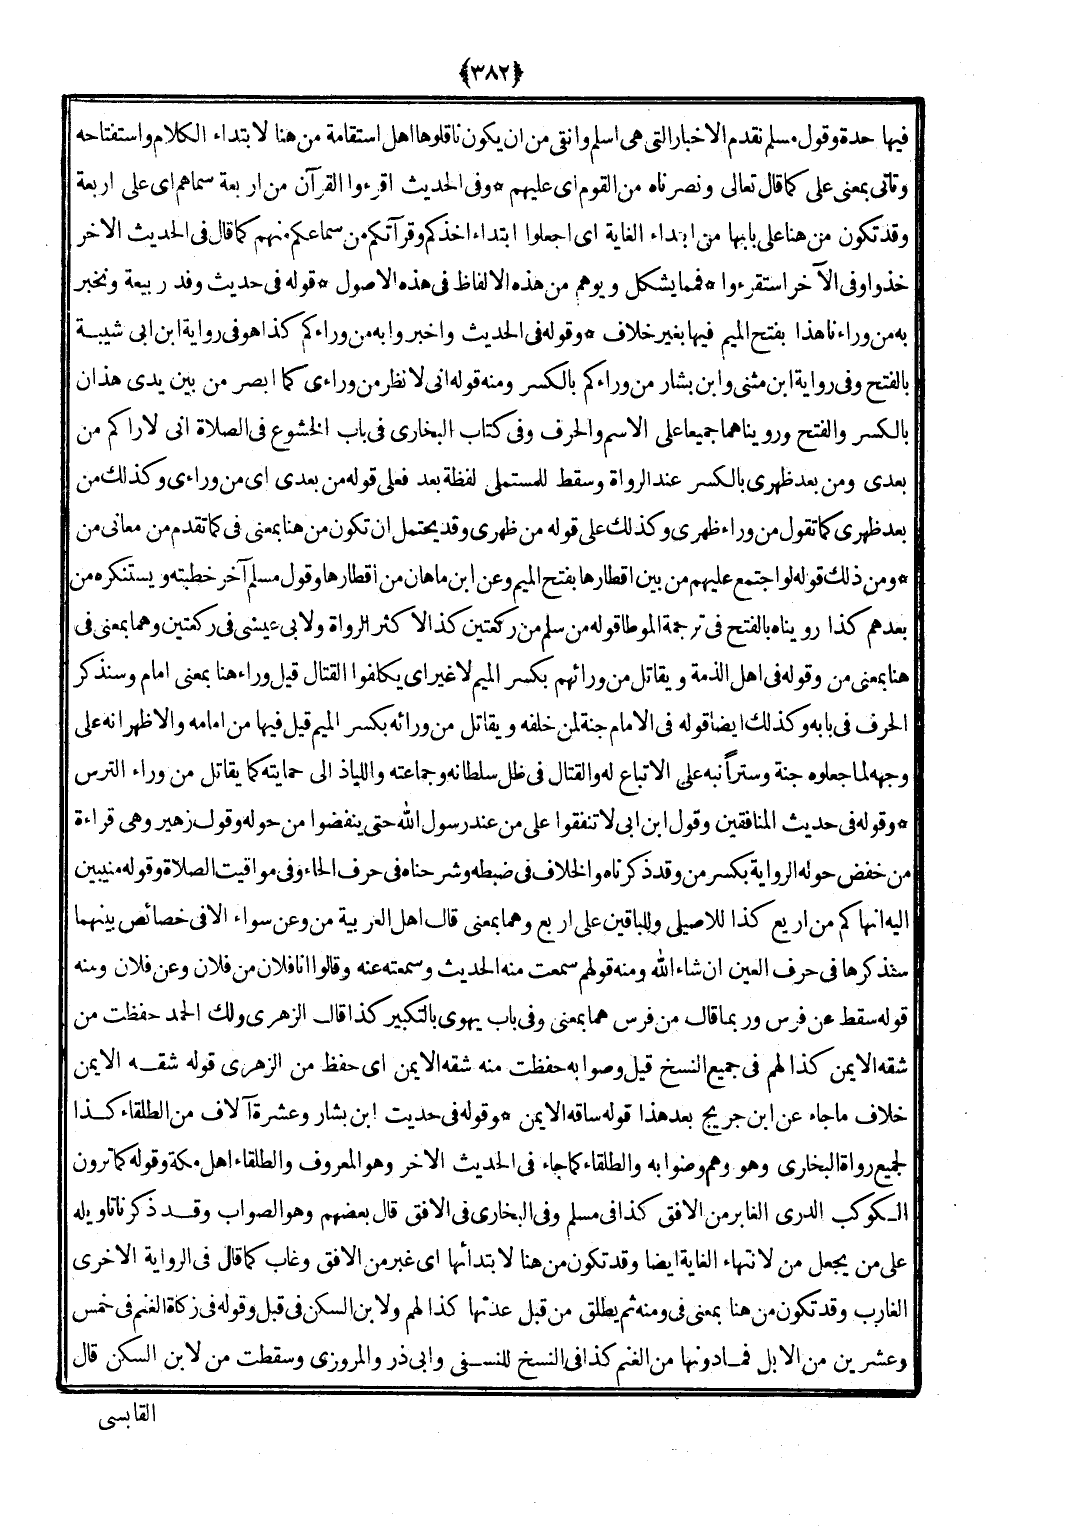 ﴿٣٨٢﴾
فيها حدة وقول مسلم نقدم الاخبار التى هى اسلم وانقى من ان يكون ناقلوها اهل استقامة من هنا لابتداء الكلام واستفتاحه
وتأتى بمعنى على كما قال تعالى ونصرناه من القوم اى عليهم * وفى الحديث اقرءوا القرآن من اربعة سماهم اى على اربعة
وقد تكون من هنا على بابها من ابتداء الغاية اى اجعلوا ابتداء اخذكم وقرآتكم من سماعكم منهم كما قال فى الحديث الاخر
خذوا وفى الآخر استقرءوا * فمما يشكل ويوهم من هذه الالفاظ فى هذه الاصول * قوله فى حديث وفد ربيعة ونخبر
به من وراءنا هذا بفتح الميم فيها بغير خلاف * وقوله فى الحديث واخبروا به من وراءكم كذا هو فى رواية ابن ابى شيبة
بالفتح وفى رواية ابن مثنى وابن بشار من وراءكم بالكسر ومنه قوله انى لانظر من وراءى كما ابصر من بين يدى هذان
بالكسر والفتح ورويناهما جميعا على الاسم والحرف وفى كتاب البخارى فى باب الخشوع فى الصلاة انى لاراكم من
بعدى ومن بعد ظهرى بالكسر عند الرواة وسقط للمستملى لفظة بعد فعلى قوله من بعدى اى من وراءى وكذلك من
بعد ظهرى كما تقول من وراء ظهرى وكذلك على قوله من ظهرى وقد يحتمل ان تكون من هنا بمعنى فى كما تقدم من معانى من
* ومن ذلك قوله لو اجتمع عليهم من بين اقطارها بفتح الميم وعن ابن ماهان من أقطارها وقول مسلم آخر خطبته ويستنكره من
بعدهم كذا رويناه بالفتح فى ترجمة الموطا قوله من سلم من ركعتين كذا لاكثر الرواة ولابى عيسى فى ركعتين وهما بمعنى فى
هنا بمعنى من وقوله فى اهل الذمة ويقاتل من ورائهم بكسر الميم لا غير اى يكلفوا القتال قيل وراء هنا بمعنى امام وسنذكر
الحرف فى بابه وكذلك ايضا قوله فى الامام جنة لمن خلفه ويقاتل من ورائه بكسر الميم قيل فيها من امامه والاظهر انه على
وجهه لما جعلوه جنة وستراً نبه على الاتباع له والقتال فى ظل سلطانه وجماعته واللياذ الى حمايته كما يقاتل من وراء الترس
* وقوله فى حديث المنافقين وقول ابن ابى لا تنفقوا على من عند رسول الله حتى ينفضوا من حوله وقول زهير وهى قراءة
من خفض حوله الرواية بكسر من وقد ذكرناه والخلاف فى ضبطه وشرحناه فى حرف الحاء وفى مواقيت الصلاة وقوله منيبين
اليه انهاكم من اربع كذا للاصيلى وللباقين على اربع وهما بمعنى قال اهل العربية من وعن سواء الا فى خصائص بينهما
سنذكرها فى حرف العين ان شاء الله ومنه قولهم سمعت منه الحديث وسمعته عنه وقالوا انا فلان من فلان وعن فلان ومنه
قوله سقط عن فرس وربما قال من فرس هما بمعنى وفى باب يهوى بالتكبير كذا قال الزهرى ولك الحمد حفظت من
شقه الايمن كذا لهم فى جميع النسخ قيل وصوابه حفظت منه شقه الايمن اى حفظ من الزهرى قوله شقه الايمن
خلاف ماجاء عن ابن جريج بعد هذا قوله ساقه الايمن * وقوله فى حديث ابن بشار وعشرة آلاف من الطلقاء كذا
لجميع رواة البخارى وهو وهم وصوابه والطلقاء كما جاء فى الحديث الاخر وهو المعروف والطلقاء اهل مكة وقوله كما ترون
الكوكب الدرى الغابر من الافق كذا فى مسلم وفى البخارى فى الافق قال بعضهم وهو الصواب وقد ذكرنا تاويله
على من يجعل من لانتهاء الغاية ايضا وقد تكون من هنا لابتدائها اى غبر من الافق وغاب كما قال فى الرواية الاخرى
الغارب وقد تكون من هنا بمعنى فى ومنه ثم يطلق من قبل عدتها كذا لهم ولابن السكن فى قبل وقوله فى زكاة الغنم فى خمس
وعشرين من الابل فمادونها من الغنم كذا فى النسخ للنسفى وابى ذر والمروزى وسقطت من لابن السكن قال
القابسى